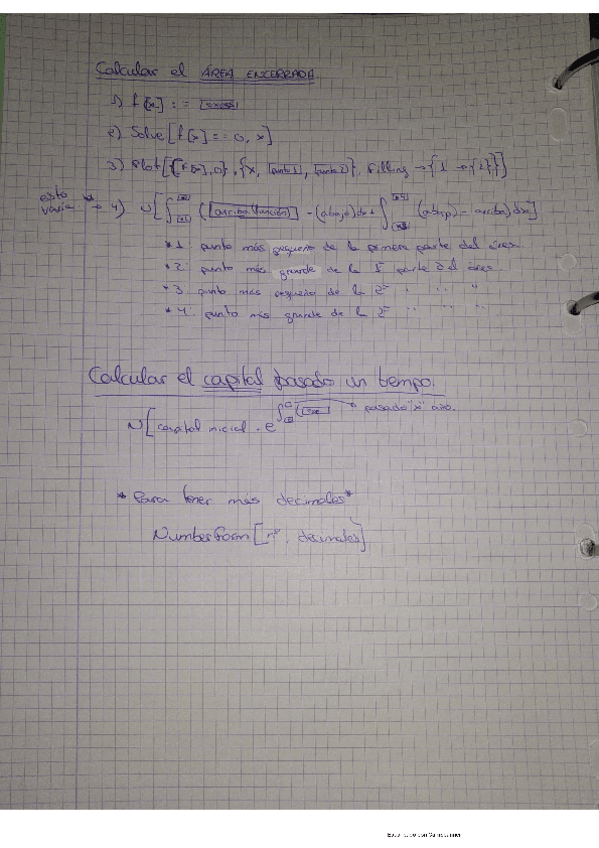 Calcular el ÁREA ENCERRADA
1) f[x] :=
2) Solve[f[x] == 0, x]
3) Plot[{f[x], 0}, {x, punto 1, punto 2}, Filling → {1 → {2}}]
esto varía → 4) N[∫ (arriba función) - (abajo) dx + ∫ (abajo) - arriba) dx]
*1: punto más pequeño de la primera parte del área.
*2: punto más grande de la 1ª parte del área.
*3: punto más pequeño de la 2ª " " "
*4: punto más grande de la 2ª " " "
Calcular el capital pasado un tiempo.
N[capital inicial · e^∫ → pasado "x" año.
* Para tener más decimales *
NumberForm[nº, decimales]